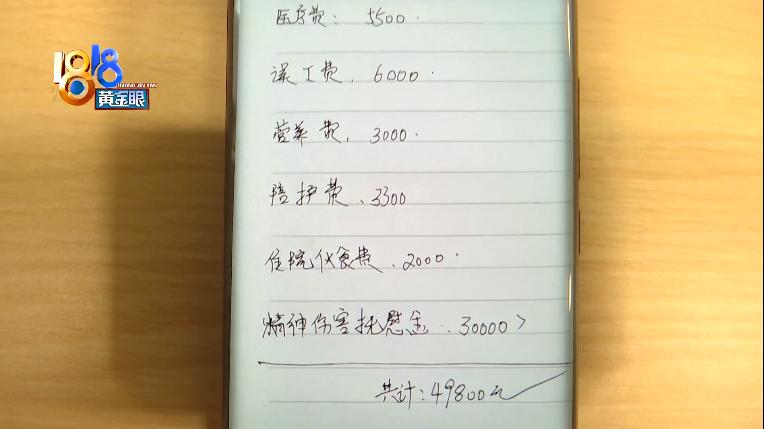 1818
黄金眼
医疗费: 5500.
误工费, 6000.
营养费, 3000.
陪护费、3300
住院伙食费、2000.
精神伤害抚慰金: 30000
共计: 49800元